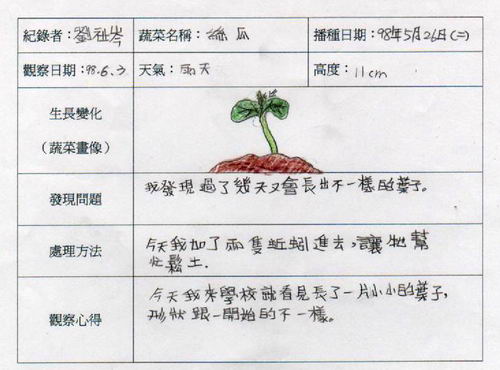 紀錄者：劉祉岑 蔬菜名稱：絲瓜 播種日期：98年5月26日(二)
觀察日期：98.6.3 天氣：雨天 高度：11cm
生長變化
（蔬菜畫像）
發現問題 我發現過了幾天又會長出不一樣的葉子。
處理方法 今天我加了兩隻蚯蚓進去，讓牠幫
忙鬆土.
觀察心得 今天我來學校就看見長了一片小小的葉子，
形狀跟一開始的不一樣。